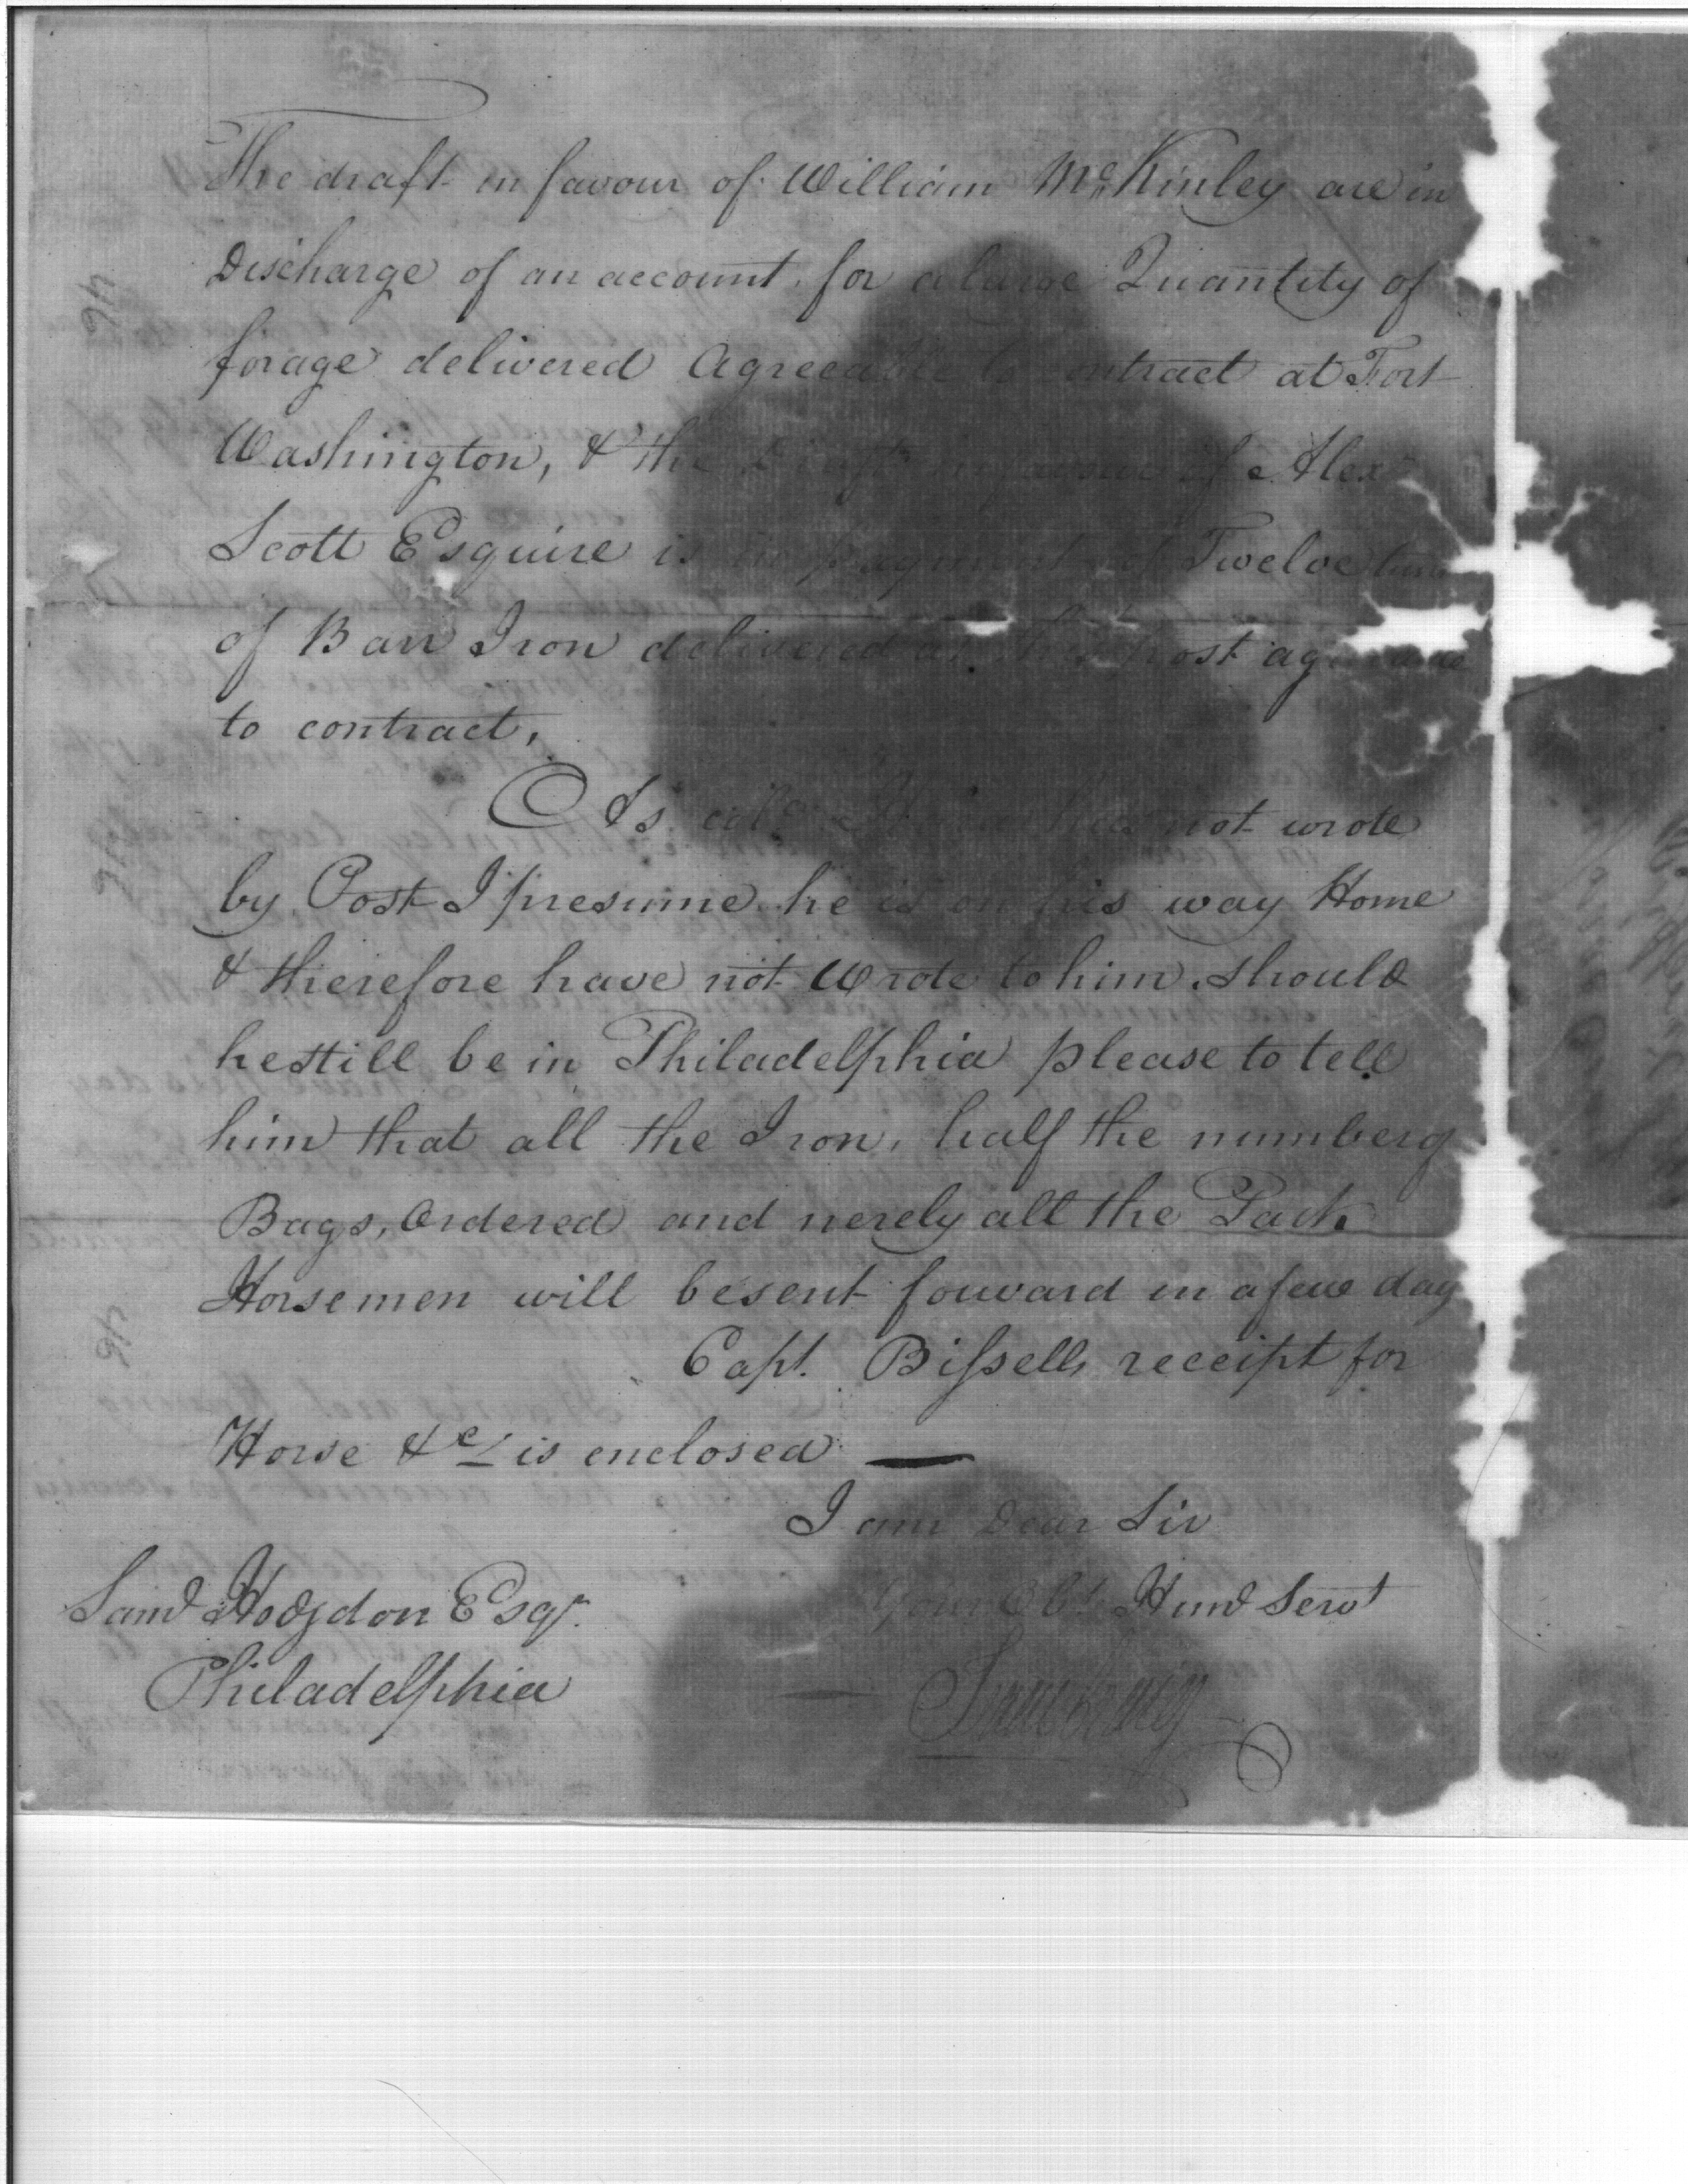 The draft in favour of William McKinley are in
Discharge of an account for a large Quantity of
forage delivered Agreeable to contract at Fort
Washington, & the Draft in favour of Alex
Scott Esquire is in payment of Twelve tuns
of Barr Iron delivered at this post
to contract,
As not wrote
by Post I presume he is on his way Home
& therefore have not Wrote to him. should
he still be in Philadelphia please to tell
him that all the Iron, half the number of
Bags, Ordered and nerely all the Pack
Horsemen will be sent forward in a few day
Capt. Bissells receipt for
Horse &c is enclosed —
I am Dear Sir
Your Obt Huml Servt
Saml Hodgdon Esqr.
Philadelphia